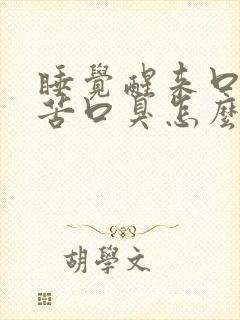 睡覺醒來口
苦口臭怎麼
胡學文